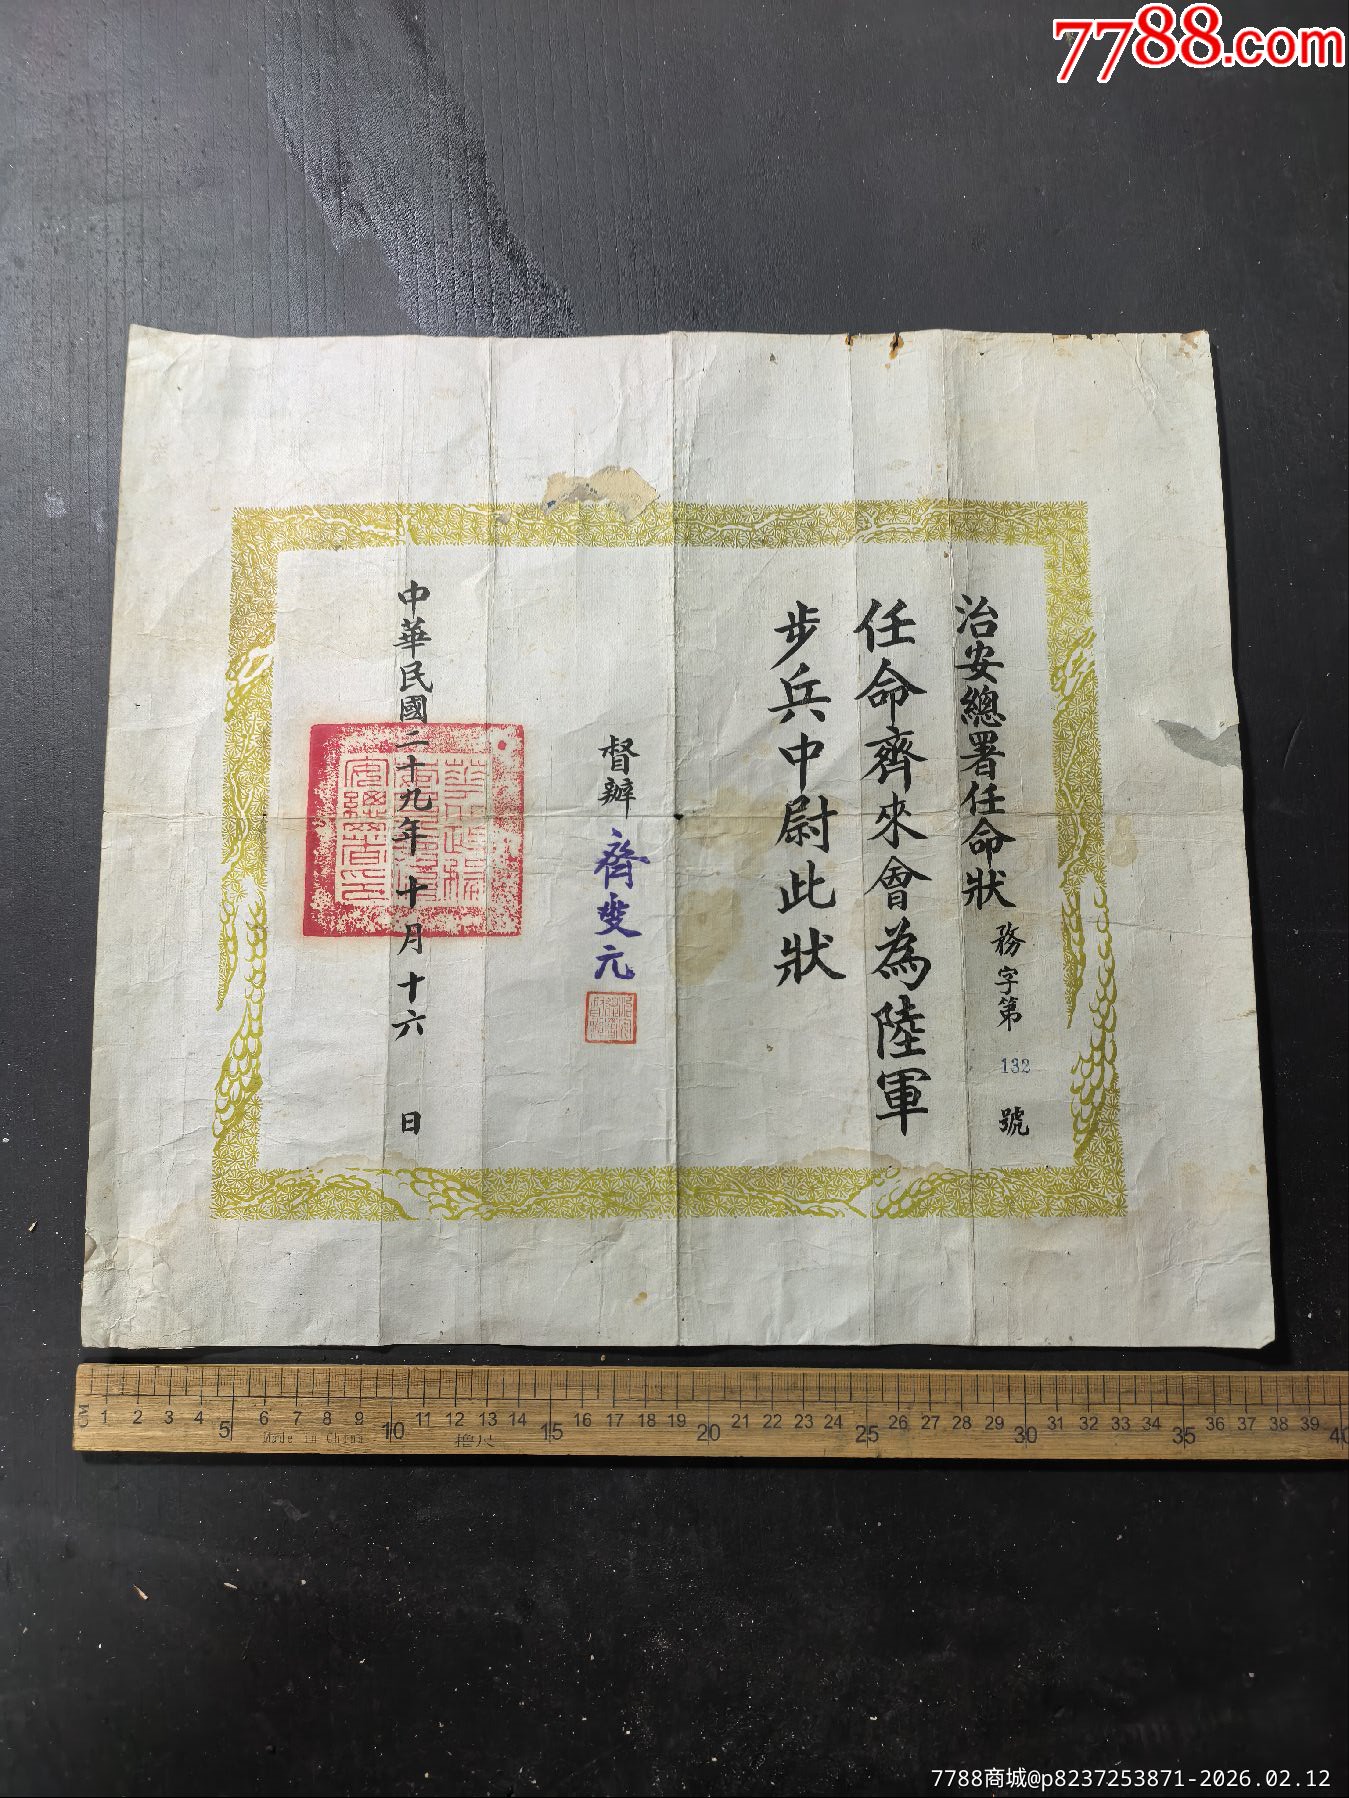 7788.com
治安總署任命狀 務字第 132 號
任命齊來會為陸軍
步兵中尉此狀
督辦 齊燮元
中華民國二十九年十月十六 日
CM 1 2 3 4 5 6 7 8 9 10 11 12 13 14 15 16 17 18 19 20 21 22 23 24 25 26 27 28 29 30 31 32 33 34 35 36 37 38 39 40
Made in China
7788商城@p8237253871-2026.02.12